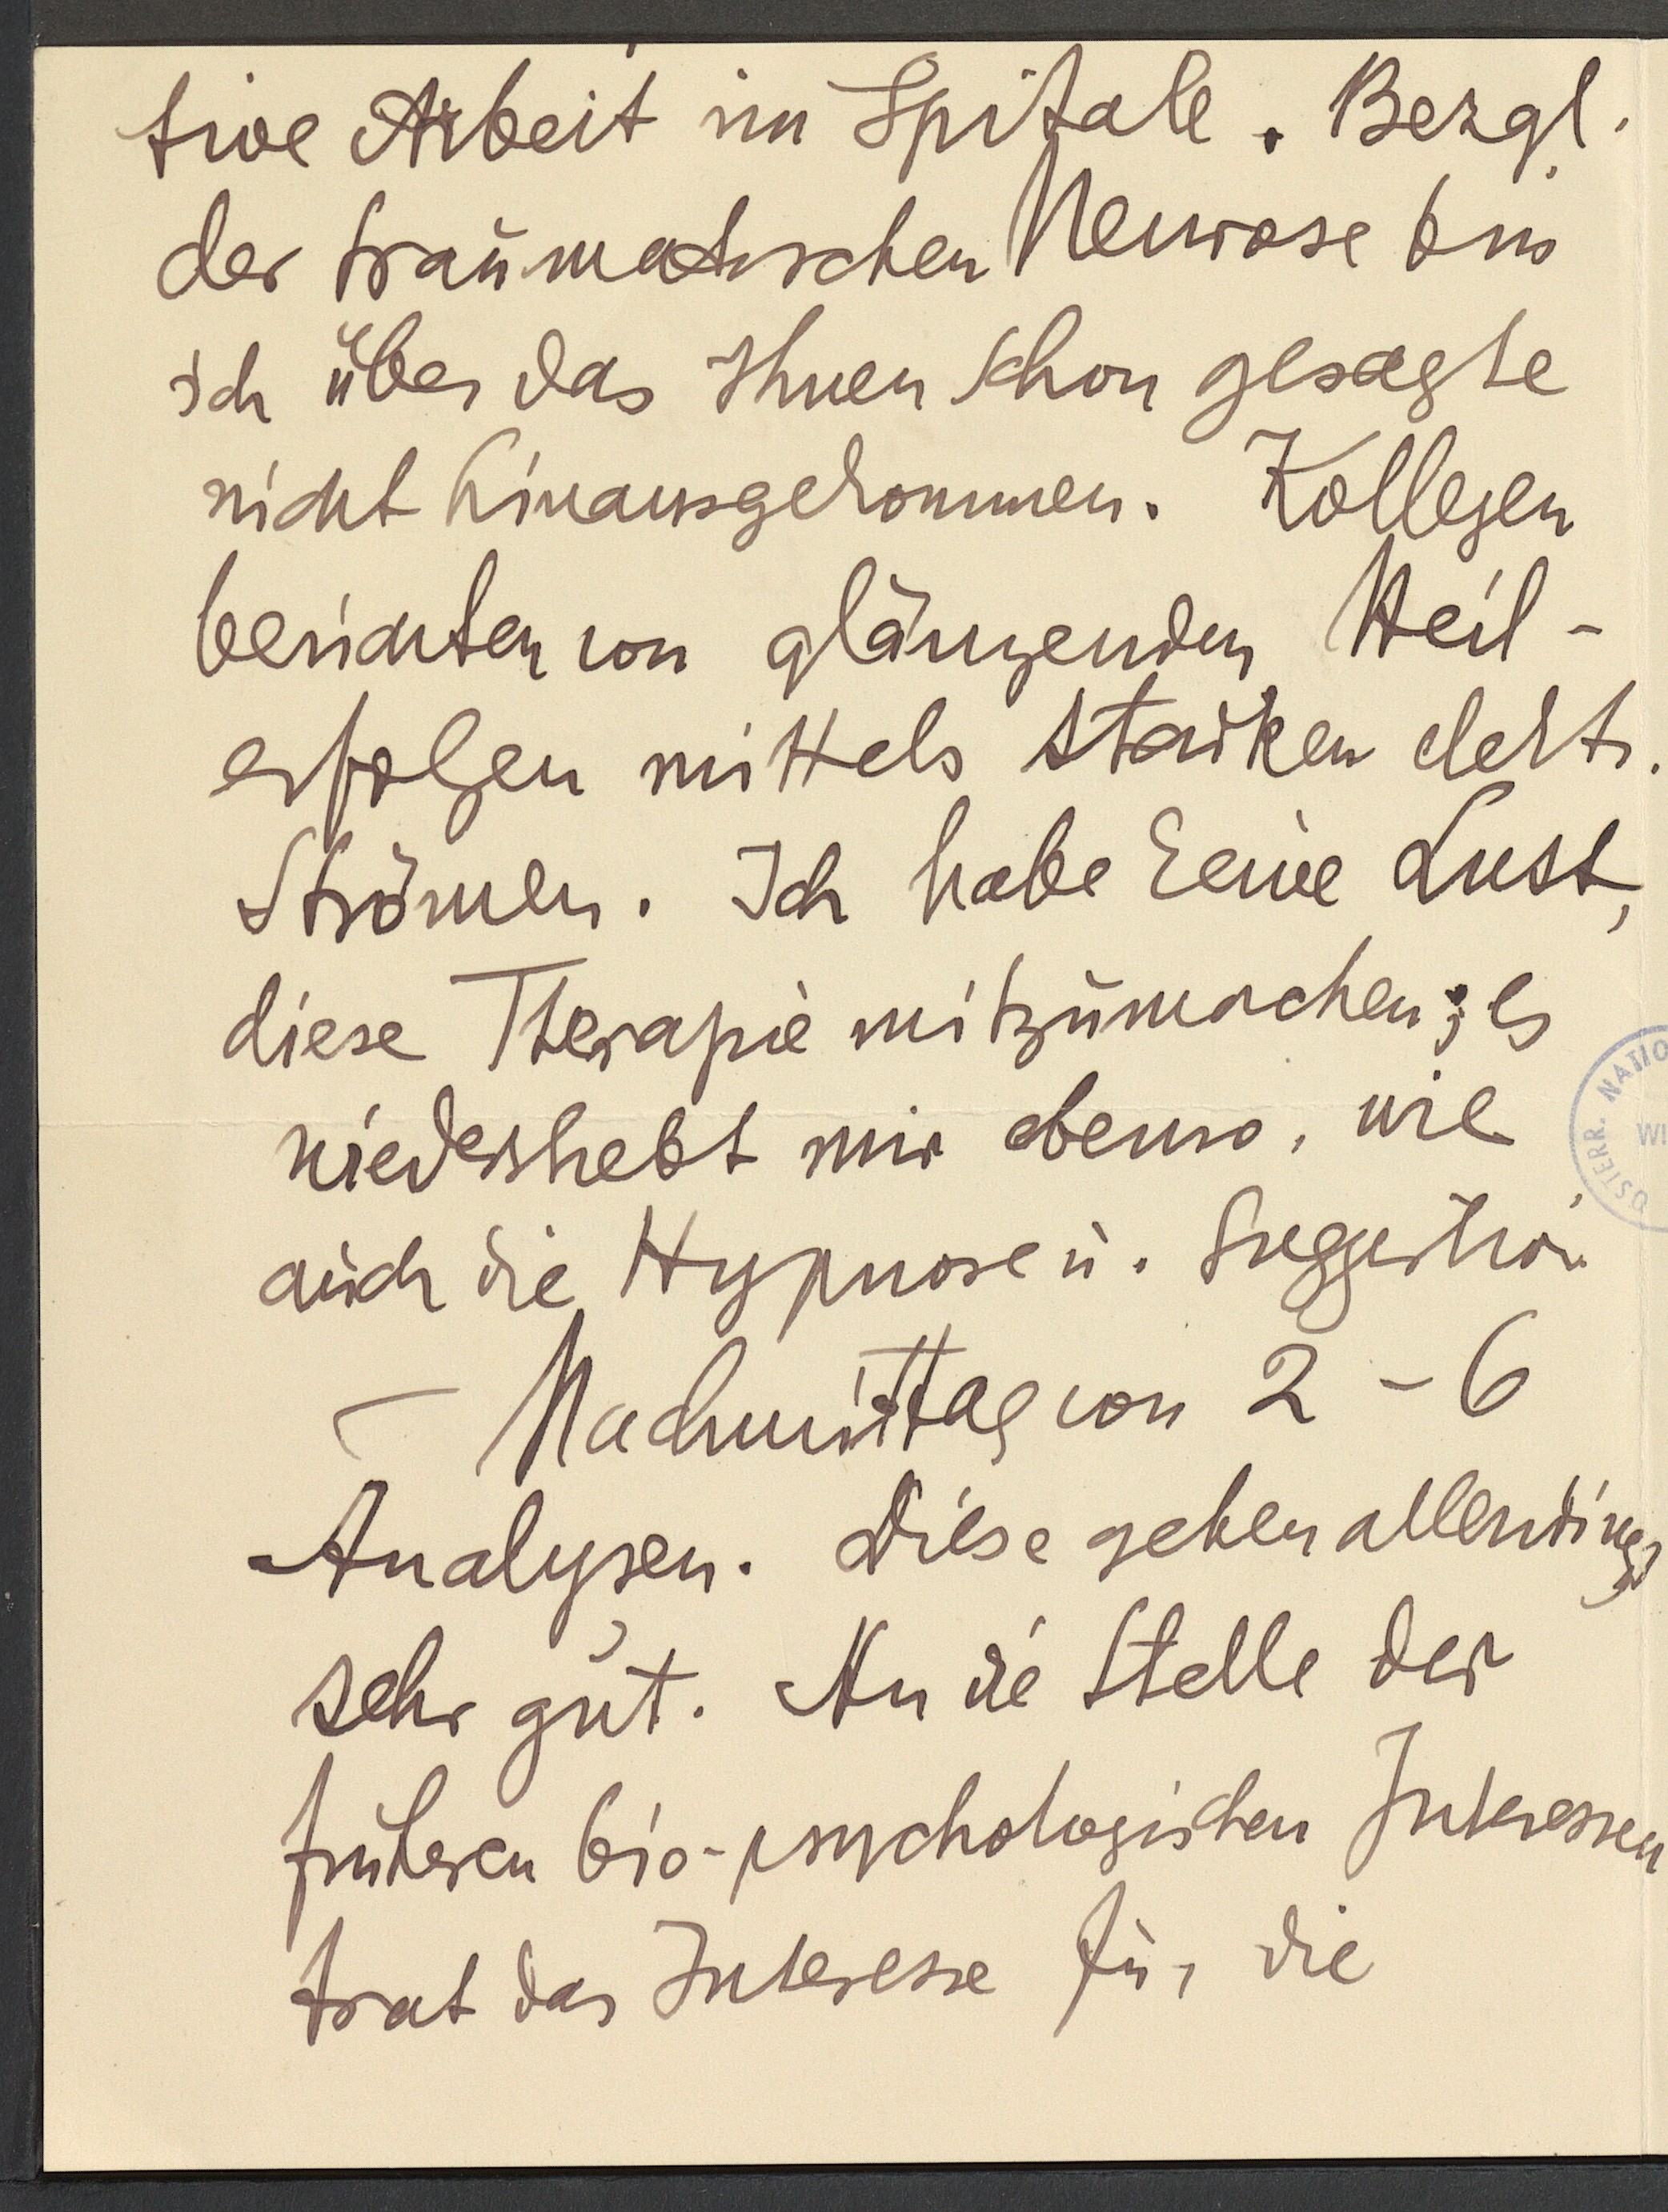 tive Arbeit im Spitale. Bezgl.
der traumatischen Neurose bin
ich über das Ihnen schon gesagte
nicht hinausgekommen. Kollegen
berichten von glänzenden Heil-
erfolgen mittels starken elektr.
Strömen. Ich habe keine Lust,
diese Therapie mitzumachen; es
widerstrebt mir ebenso, wie
auch die Hypnose u. Suggestion
— Nachmittag von 2 - 6
Analysen. Diese gehen allerdings
sehr gut. An die Stelle der
früheren bio-psychologischen Interessen
trat das Interesse für die
ÖSTERR. NATIO
WI